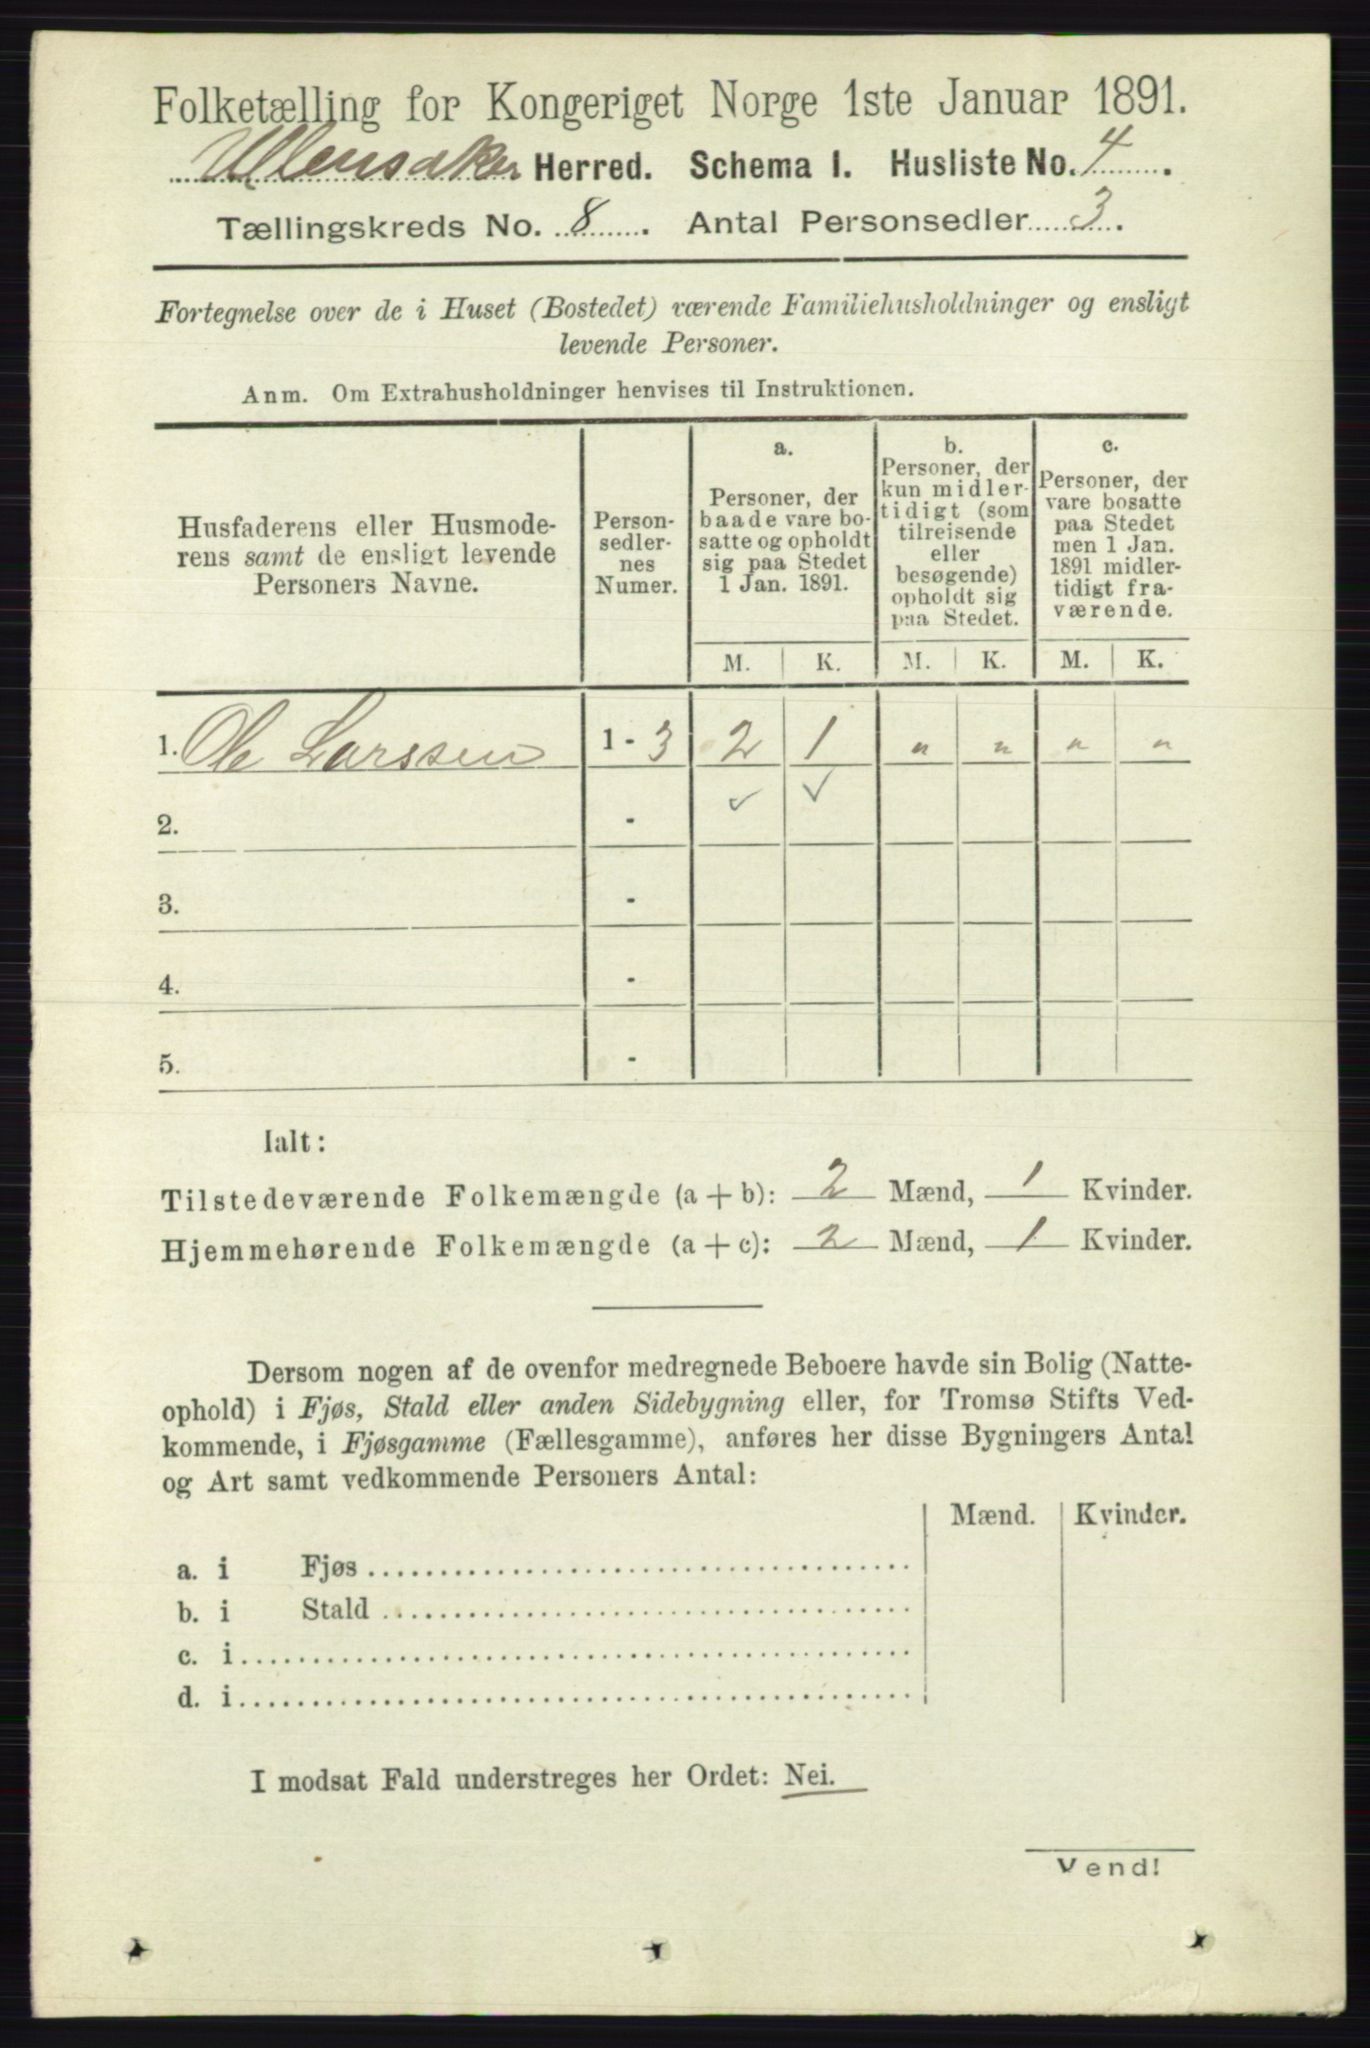 Folketælling for Kongeriget Norge 1ste Januar 1891.
Ullensaker Herred. Schema I. Husliste No. 4.
Tællingskreds No. 8. Antal Personsedler 3.
Fortegnelse over de i Huset (Bostedet) værende Familiehusholdninger og ensligt
levende Personer.
Anm. Om Extrahusholdninger henvises til Instruktionen.
Husfaderens eller Husmode-
rens samt de ensligt levende
Personers Navne.
Person-
sedler-
nes
Numer.
a.
Personer, der
baade vare bo-
satte og opholdt
sig paa Stedet
1 Jan. 1891.
b.
Personer, der
kun midler-
tidigt (som
tilreisende
eller
besøgende)
opholdt sig
paa Stedet.
c.
Personer, der
vare bosatte
paa Stedet
men 1 Jan.
1891 midler-
tidigt fra-
værende.
M. K. M. K. M. K.
1. Ole Larssen 1 - 3 2 1 " " " "
✓ ✓
2. -
3. -
4. -
5. -
Ialt:
Tilstedeværende Folkemængde (a + b): 2 Mænd, 1 Kvinder.
Hjemmehørende Folkemængde (a + c): 2 Mænd, 1 Kvinder.
Dersom nogen af de ovenfor medregnede Beboere havde sin Bolig (Natte-
ophold) i Fjøs, Stald eller anden Sidebygning eller, for Tromsø Stifts Ved-
kommende, i Fjøsgamme (Fællesgamme), anføres her disse Bygningers Antal
og Art samt vedkommende Personers Antal:
Mænd. Kvinder.
a. i Fjøs
b. i Stald
c. i
d. i
I modsat Fald understreges her Ordet: Nei.
Vend!